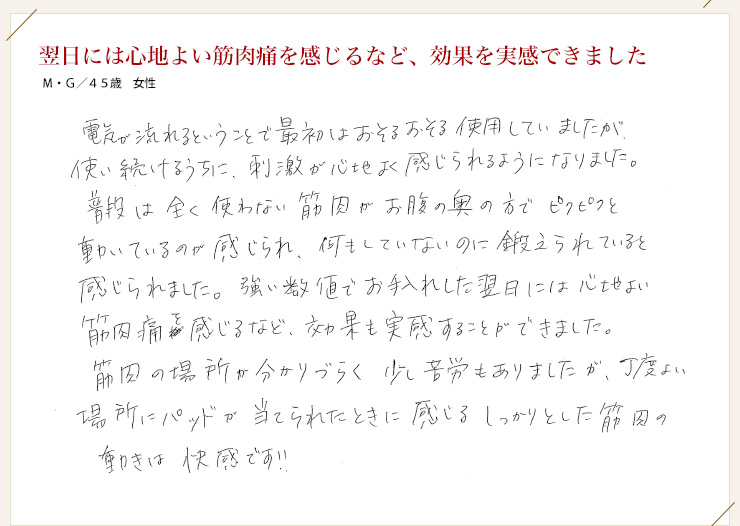 翌日には心地よい筋肉痛を感じるなど、効果を実感できました
M・G／45歳　女性
電気が流れるということで最初はおそるおそる使用していましたが、
使い続けるうちに、刺激が心地よく感じられるようになりました。
普段は全く使わない筋肉がお腹の奥の方でピクピクと
動いているのが感じられ、何もしていないのに鍛えられていると
感じられました。強い数値でお手入れした翌日には心地よい
筋肉痛を感じるなど、効果も実感することができました。
筋肉の場所が分かりづらく少し苦労もありましたが、丁度よい
場所にパッドが当てられたときに感じるしっかりとした筋肉の
動きは快感です!!